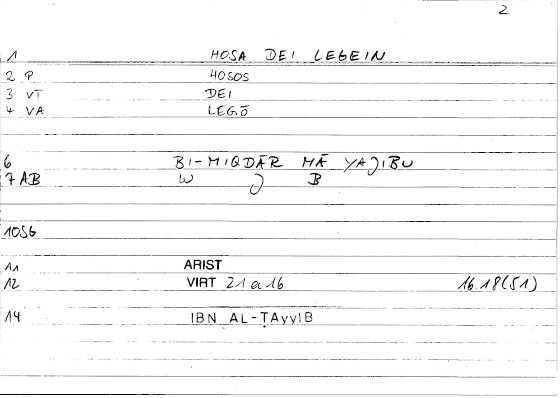 2
1 HOSA DEI LEGEIN
2 P HOSOS
3 VT DEI
4 VA LEGŌ
6 BI-MIQDĀR MĀ YAJIBU
7 AB W J B
10S6
11 ARIST
12 VIRT 21 a 16 16.18(51)
14 IBN AL-ṬAyyIB